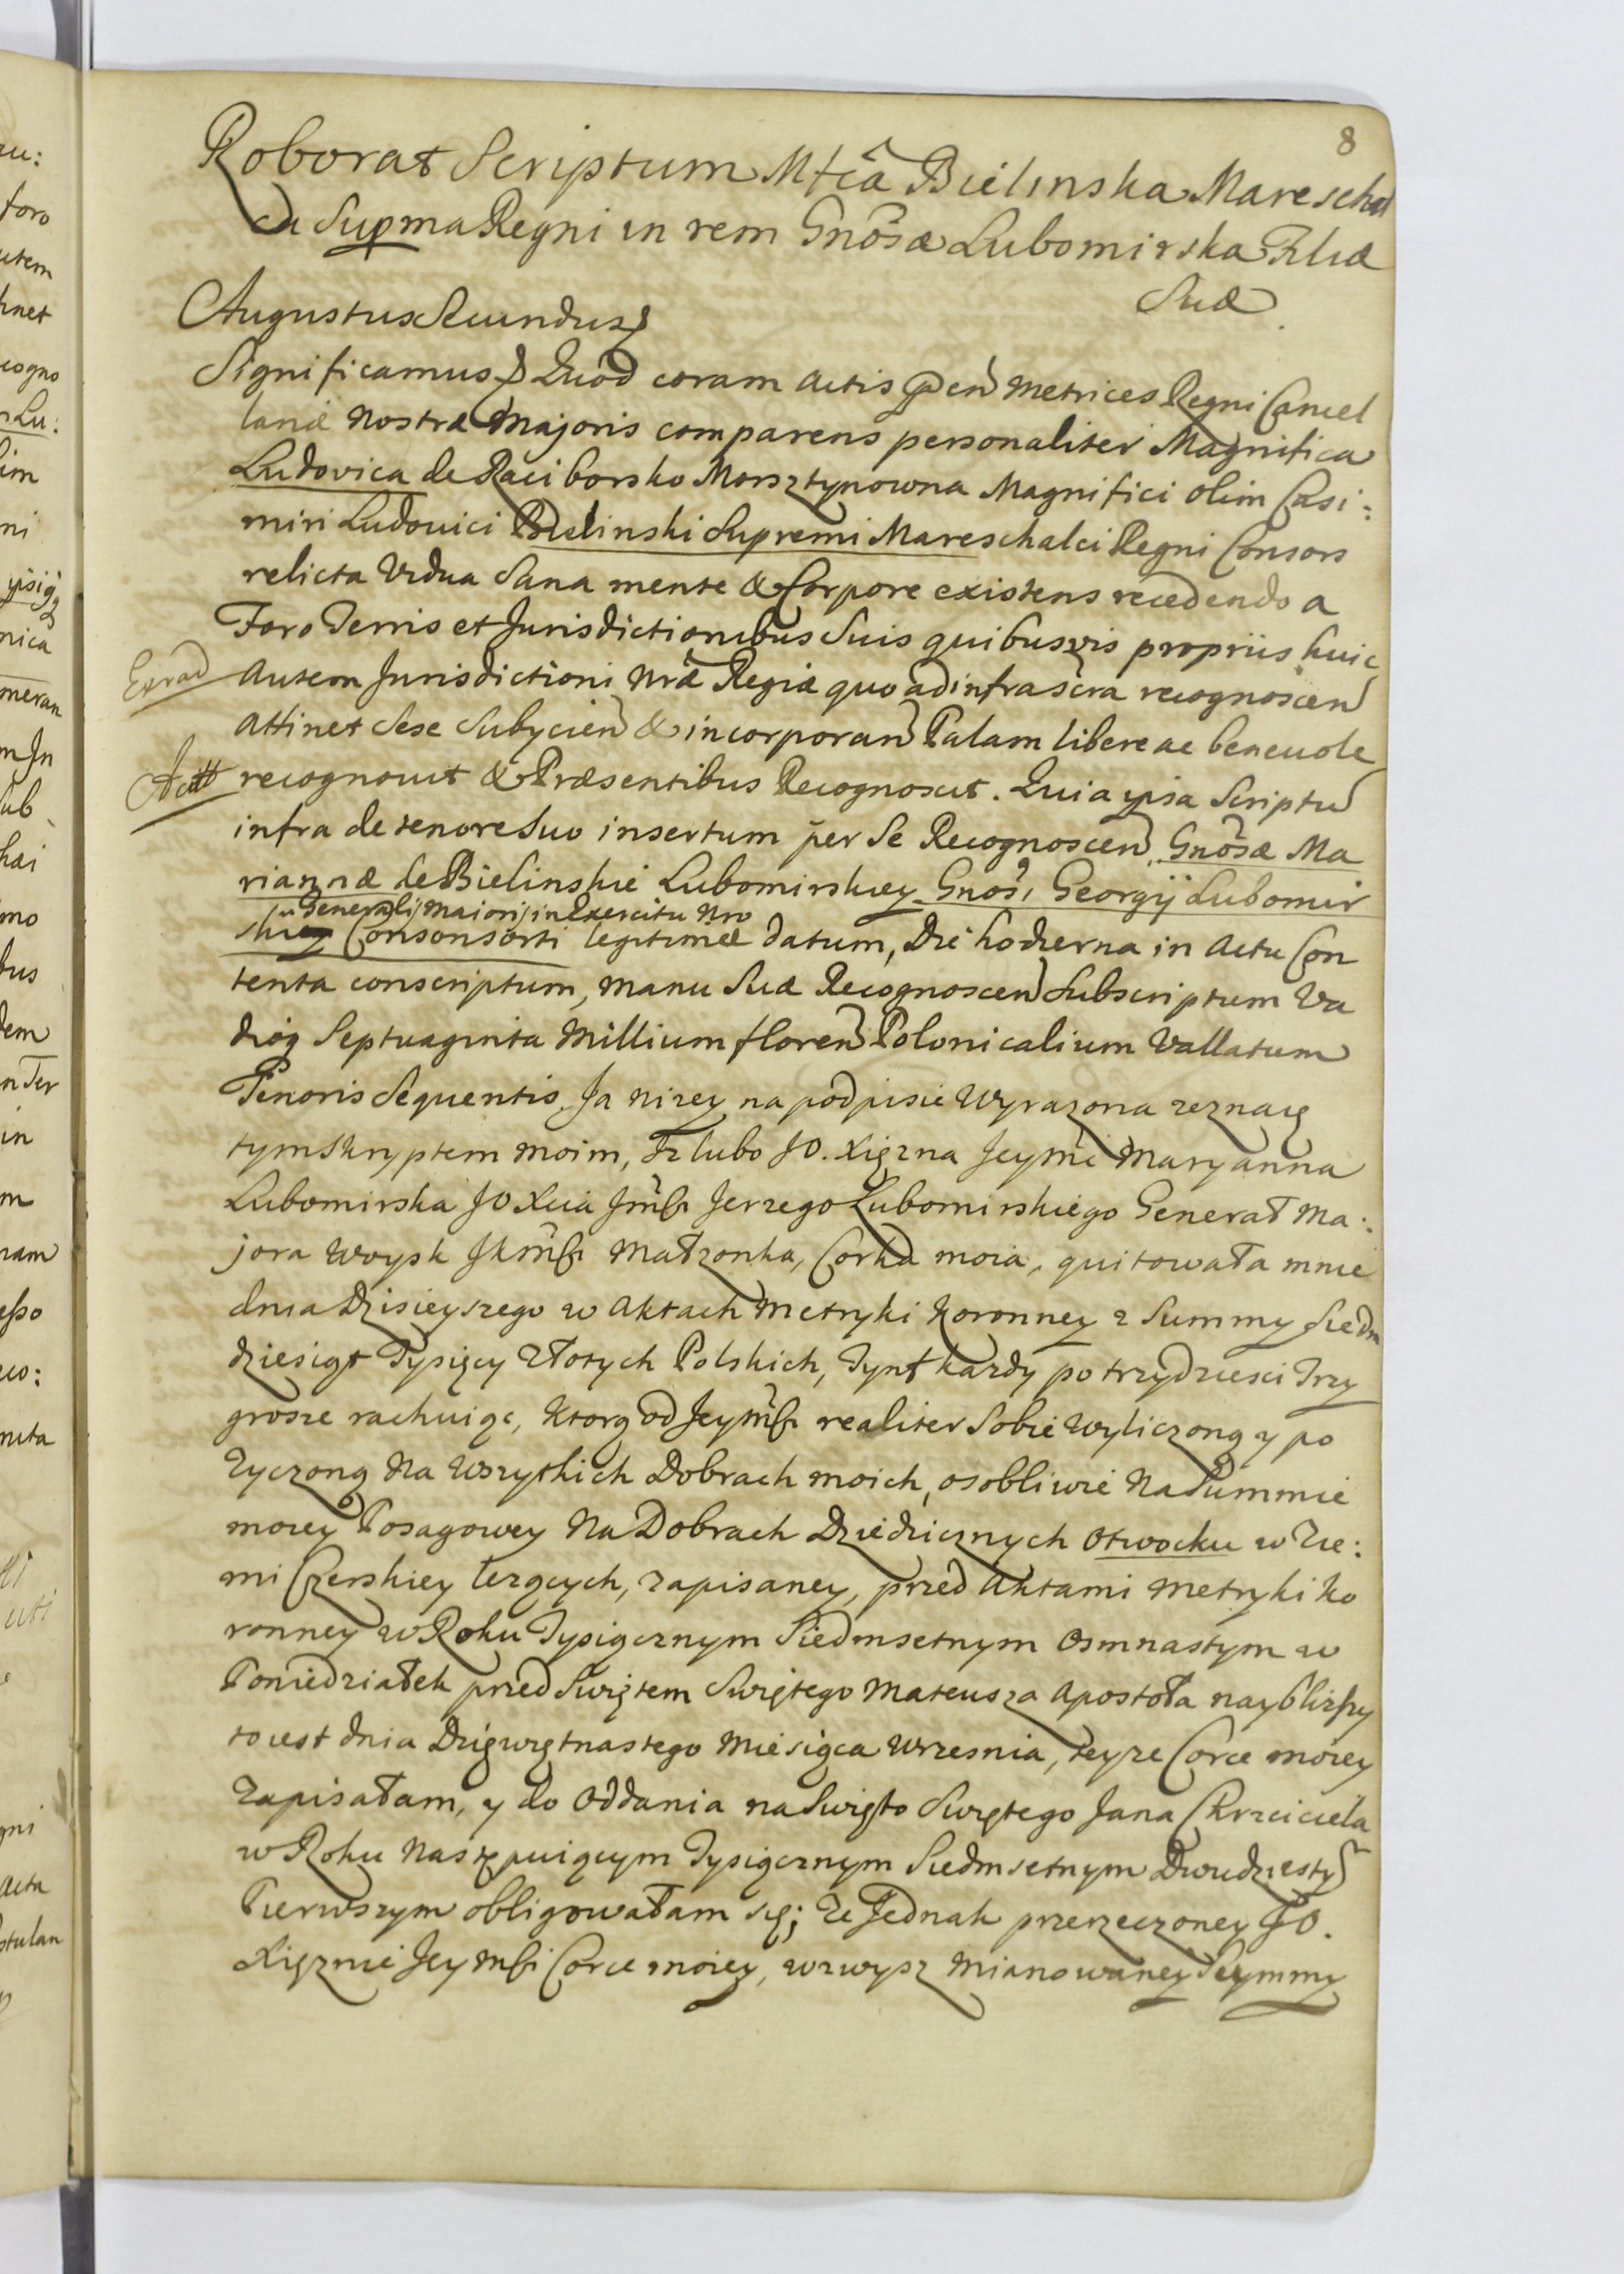 8
Roborat Scriptum Mfcâ Bielinska Mareschal
ca Supma Regni in rem Gnosæ Lubomirska Filiæ
Suæ
Augustus Secundus
Significamus Quod coram Actis pñ Metrices Regni Cancel
lariæ Nostræ Majoris comparens personaliter Magnifica
Ludovica de Raciborsko Morsztynowna Magnifici olim Casi:
miri Ludovici Bielinski Supremi Mareschalci Regni Consors
relicta Vidua Sana mente & Corpore existens recedendo a
Foro Terris et Jurisdictionibus Suis quibusvis propriis huic
Autem Jurisdictioni Nræ Regiæ quo ad infrascra recognoscen
Attinet Sese Subycien & incorporan Palam libere ac benevole
recognovit & Præsentibus Recognoscit. Quia ipsa Scriptu
infra de tenore Suo insertum per Se Recognoscen Gnosæ Ma
riannæ de Bielinskie Lubomirskiey Gnosi Georgij Lubomir
Generalis Maioris in Exercitu Nro
skiey Consonsorti legitimæ datum, Die hodierna in Actu Con
tenta conscriptum, manu Sua Recognoscen Subscriptum Va
dioq Septuaginta Millium floren Polonicalium Vallatum
Tenoris Sequentis. Ja nizey na podpisie Wyrazona zeznaię
tym Skryptem moim, Iz lubo JO. Xięzna Jeymć Maryanna
Lubomirska JO Xcia Jmści Jerzego Lubomirskiego Generał Ma:
jora Woysk JKmści Małzonka, Corka moia, quitowała mnie
dnia Dzisieyszego w Aktach Metryki Koronney z Summy Siedm
dziesiąt Tysięcy Złotych Polskich, Tynf kazdy po trzydziesci Trzy
grosze rachuiąc, Ktorą od Jeymści realiter Sobie Wyliczoną y po
zyczoną Na Wszytkich Dobrach moich, osobliwie Na Summie
moiey Posagowey Na Dobrach Dziedzicznych Otwocku w Zie:
mi Czerskiey lezących, zapisaney, przed Aktami Metryki Ko
ronney w Roku Tysiącznym Siedmsetnym Osmnastym w
Poniedziałek przed Swiętem Swiętego Mateusza Apostoła nayblizszy
to iest dnia Dziewiętnastego Miesiąca Wrzesnia, teyze Corce moiey
Zapisałam, y do Oddania na Swięto Swiętego Jana Chrzciciela
w Roku Następuiącym Tysiącznym Siedmsetnym Dwudziesty
Pierwszym obligowałam się; Ze Jednak przerzeczoney JO.
Xięznie Jeymści Corce moiey, wzwysz Mianowaney Summy
Acett